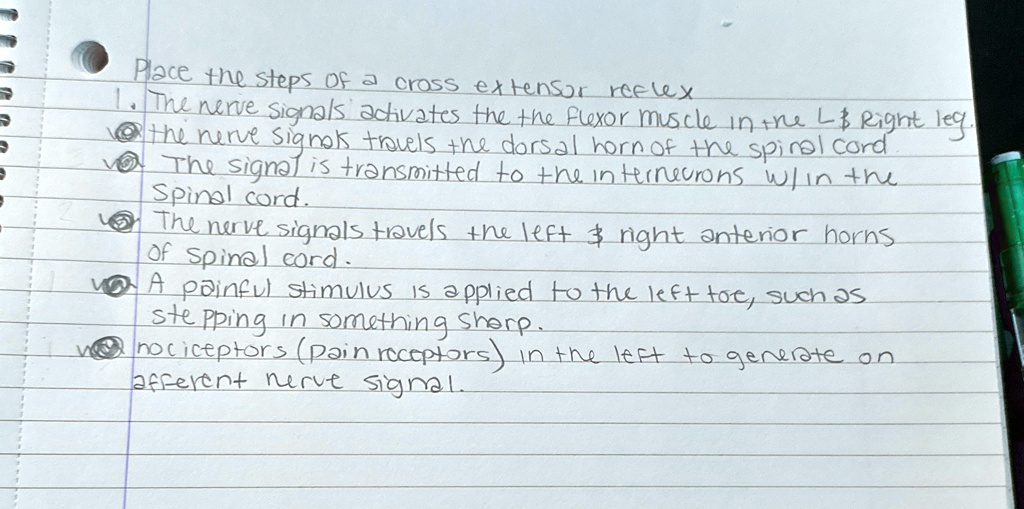 Place the steps of a cross extensor reflex
1. The nerve signals activates the the flexor muscle in the L & Right leg.
the nerve signals travels the dorsal horn of the spinal cord
The signal is transmitted to the interneurons w/in the
Spinal cord.
The nerve signals travels the left & right anterior horns
of spinal cord.
A painful stimulus is applied to the left toe, such as
stepping in something sharp.
nociceptors (pain receptors) in the left to generate an
afferent nerve signal.